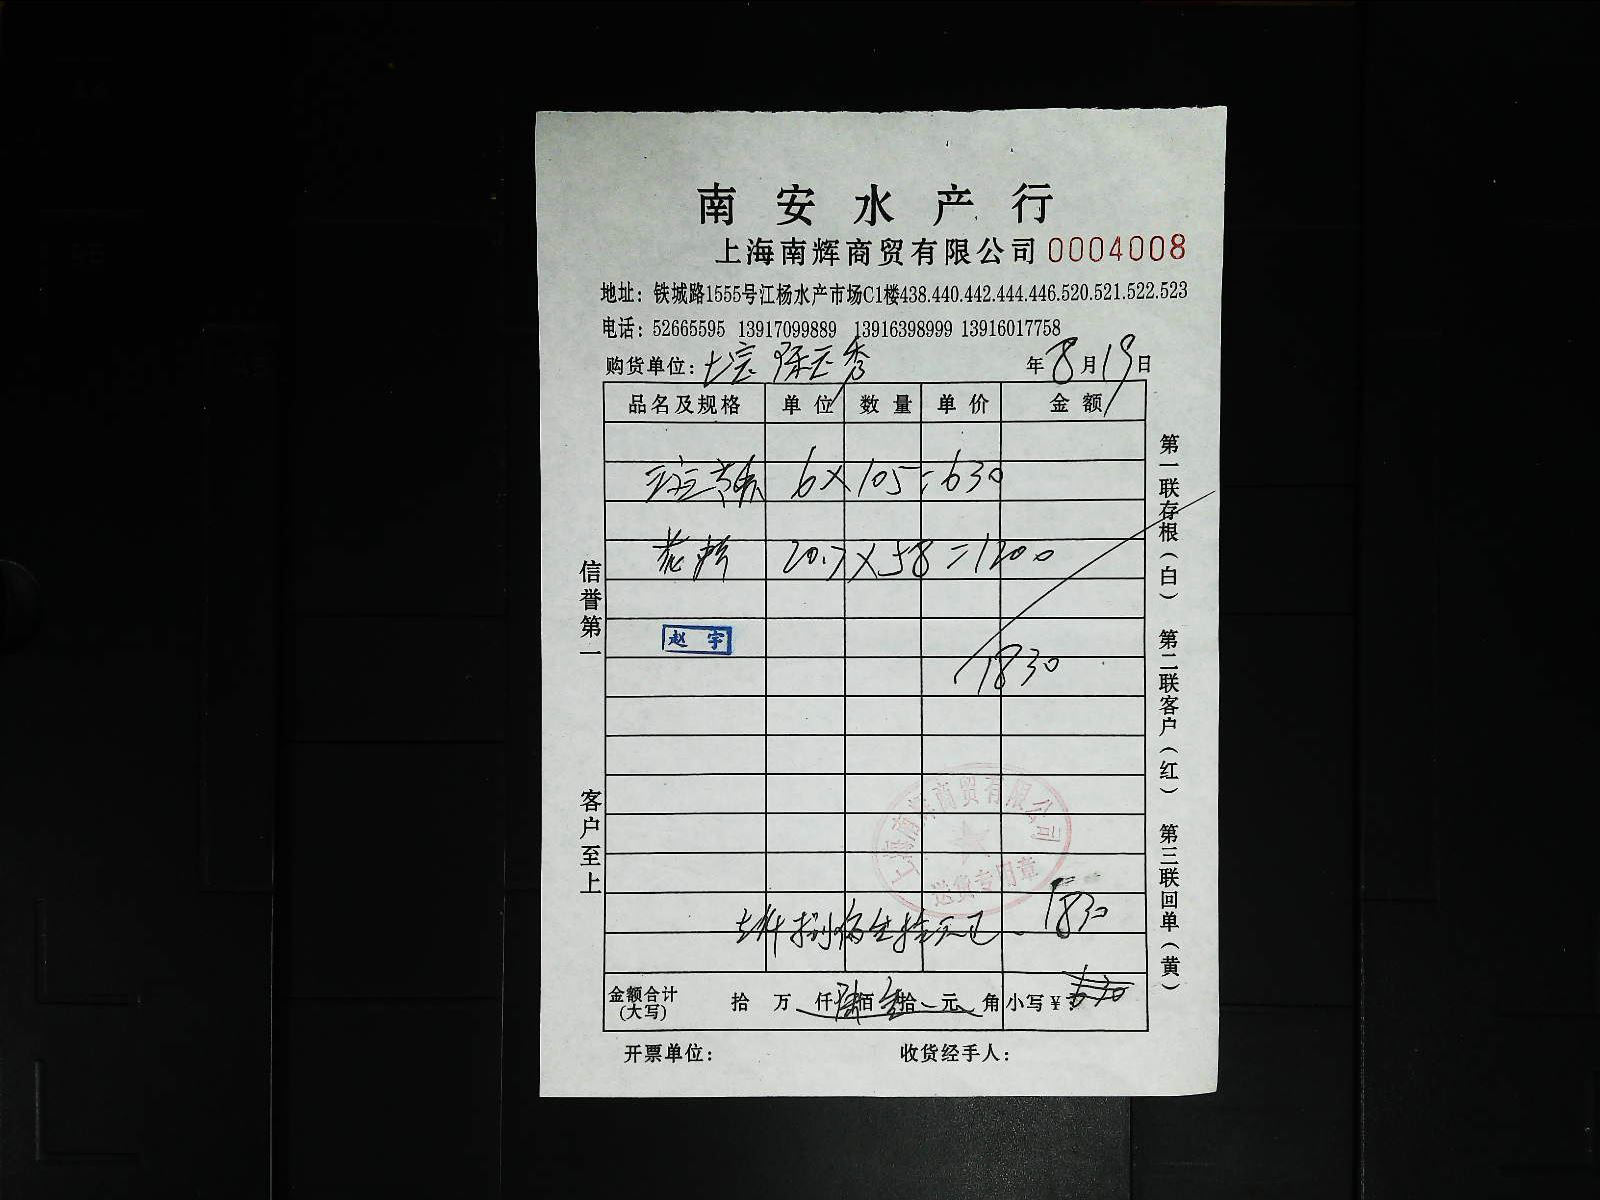 南安水产行
上海南辉商贸有限公司 0004008
地址：铁城路1555号江杨水产市场C1楼438.440.442.444.446.520.521.522.523
电话：52665595 13917099889 13916398999 13916017758
购货单位： 秀 年8月19日
品名及规格 单位 数量 单价 金额
6×105=630
20.7×58=1200
赵宇
1830
上海南辉商贸有限公司
送货专用章
1830
金额合计(大写) 拾 万 仟 佰 拾 元 角 小写¥:630
开票单位： 收货经手人：
信誉第一
客户至上
第一联存根（白） 第二联客户（红） 第三联回单（黄）